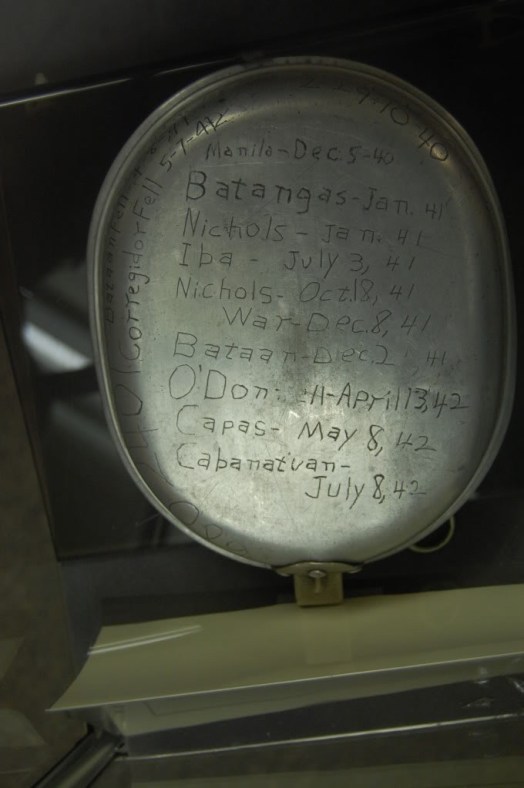 Manila-Dec.5-40
Batangas-Jan. 41
Nichols - Jan. 41
Iba - July 3, 41
Nichols- Oct.18, 41
War-Dec.8, 41
Bataan-Dec.2 41
O'Don -April 13,42
Capas- May 8, 42
Cabanatuan-
July 8,42
Corregidor Fell 5-7-42
Bataan Fell